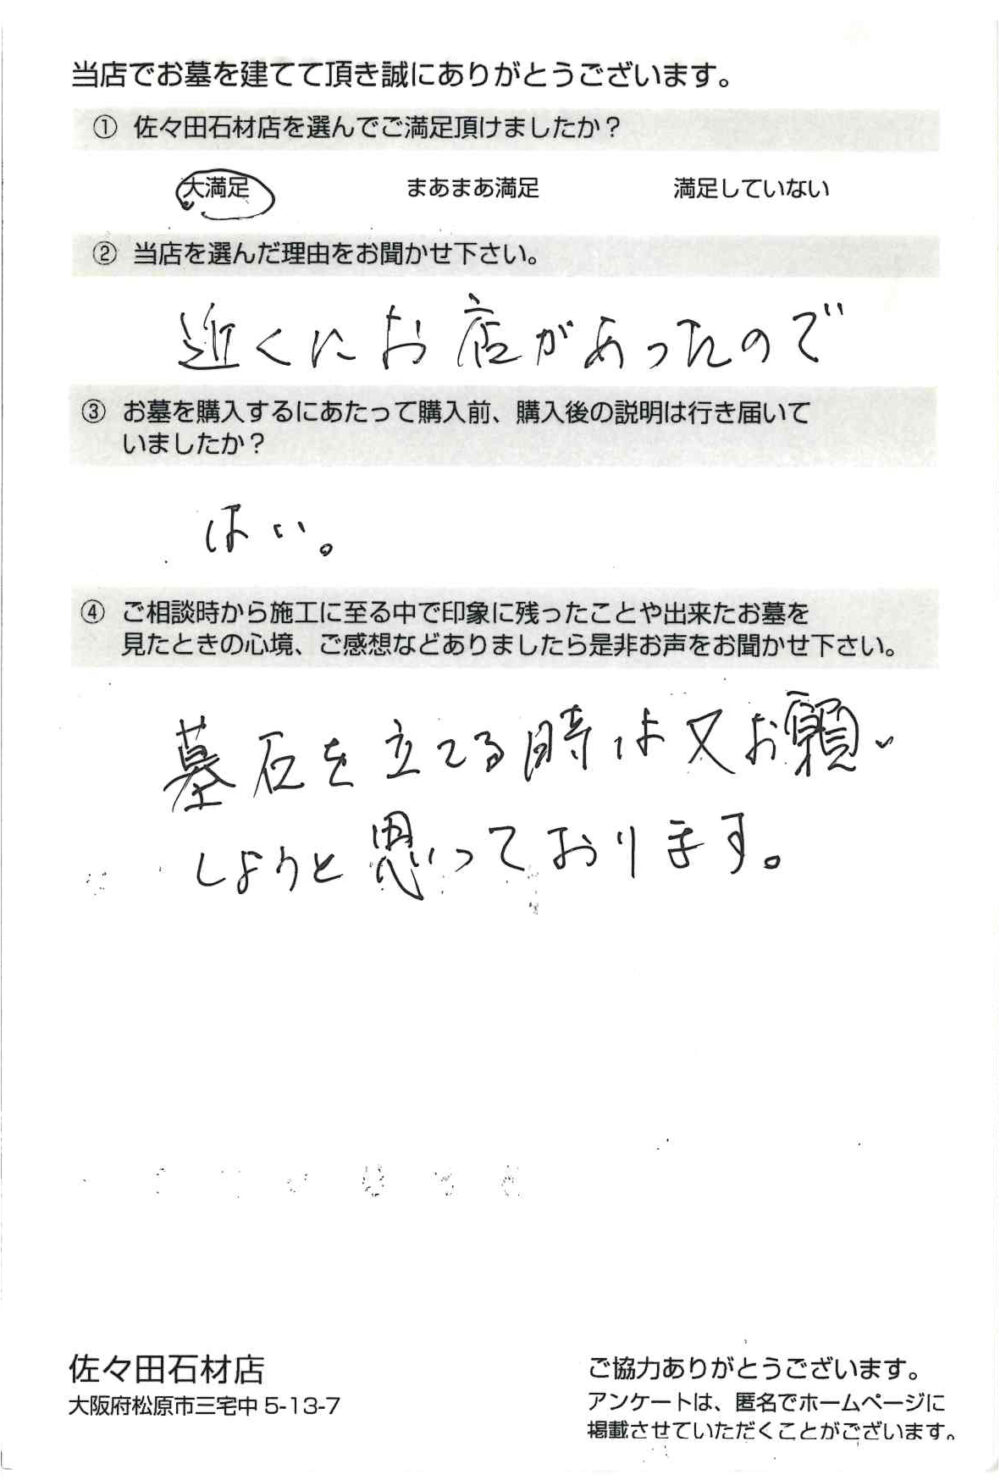 当店でお墓を建てて頂き誠にありがとうございます。
① 佐々田石材店を選んでご満足頂けましたか？
大満足 まあまあ満足 満足していない
② 当店を選んだ理由をお聞かせ下さい。
近くにお店があったので
③ お墓を購入するにあたって購入前、購入後の説明は行き届いて
いましたか？
はい。
④ ご相談時から施工に至る中で印象に残ったことや出来たお墓を
見たときの心境、ご感想などありましたら是非お声をお聞かせ下さい。
墓石を立てる時は又お願い
しようと思っております。
佐々田石材店
大阪府松原市三宅中 5-13-7
ご協力ありがとうございます。
アンケートは、匿名でホームページに
掲載させていただくことがございます。